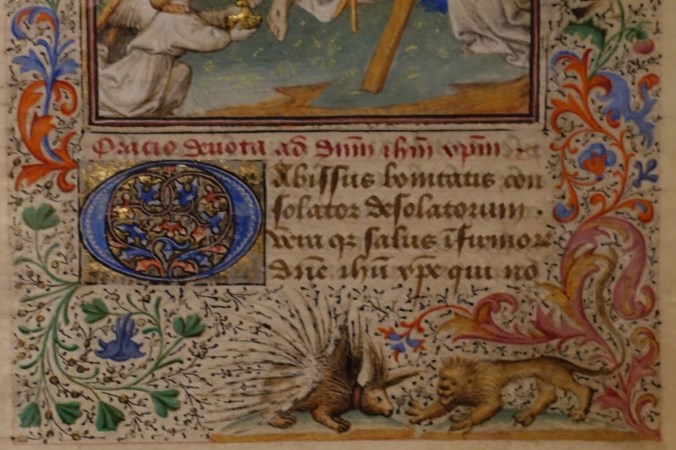 Oracio deuota ad dn̄m ihm̄ xpm̄
O abissus bonitatis con
solator desolatorum .
vera qz salus īfirmorʐ
dn̄e ihū xpe qui no